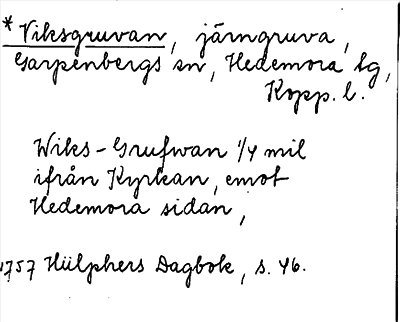 * Viksgruvan, järngruva,
Garpenbergs sn, Hedemora tg,
Kopp. l.
Wiks-Grufwan 1/4 mil
ifrån Kyrkan, emot
Hedemora sidan,
1757 Hülphers Dagbok, s. 46.